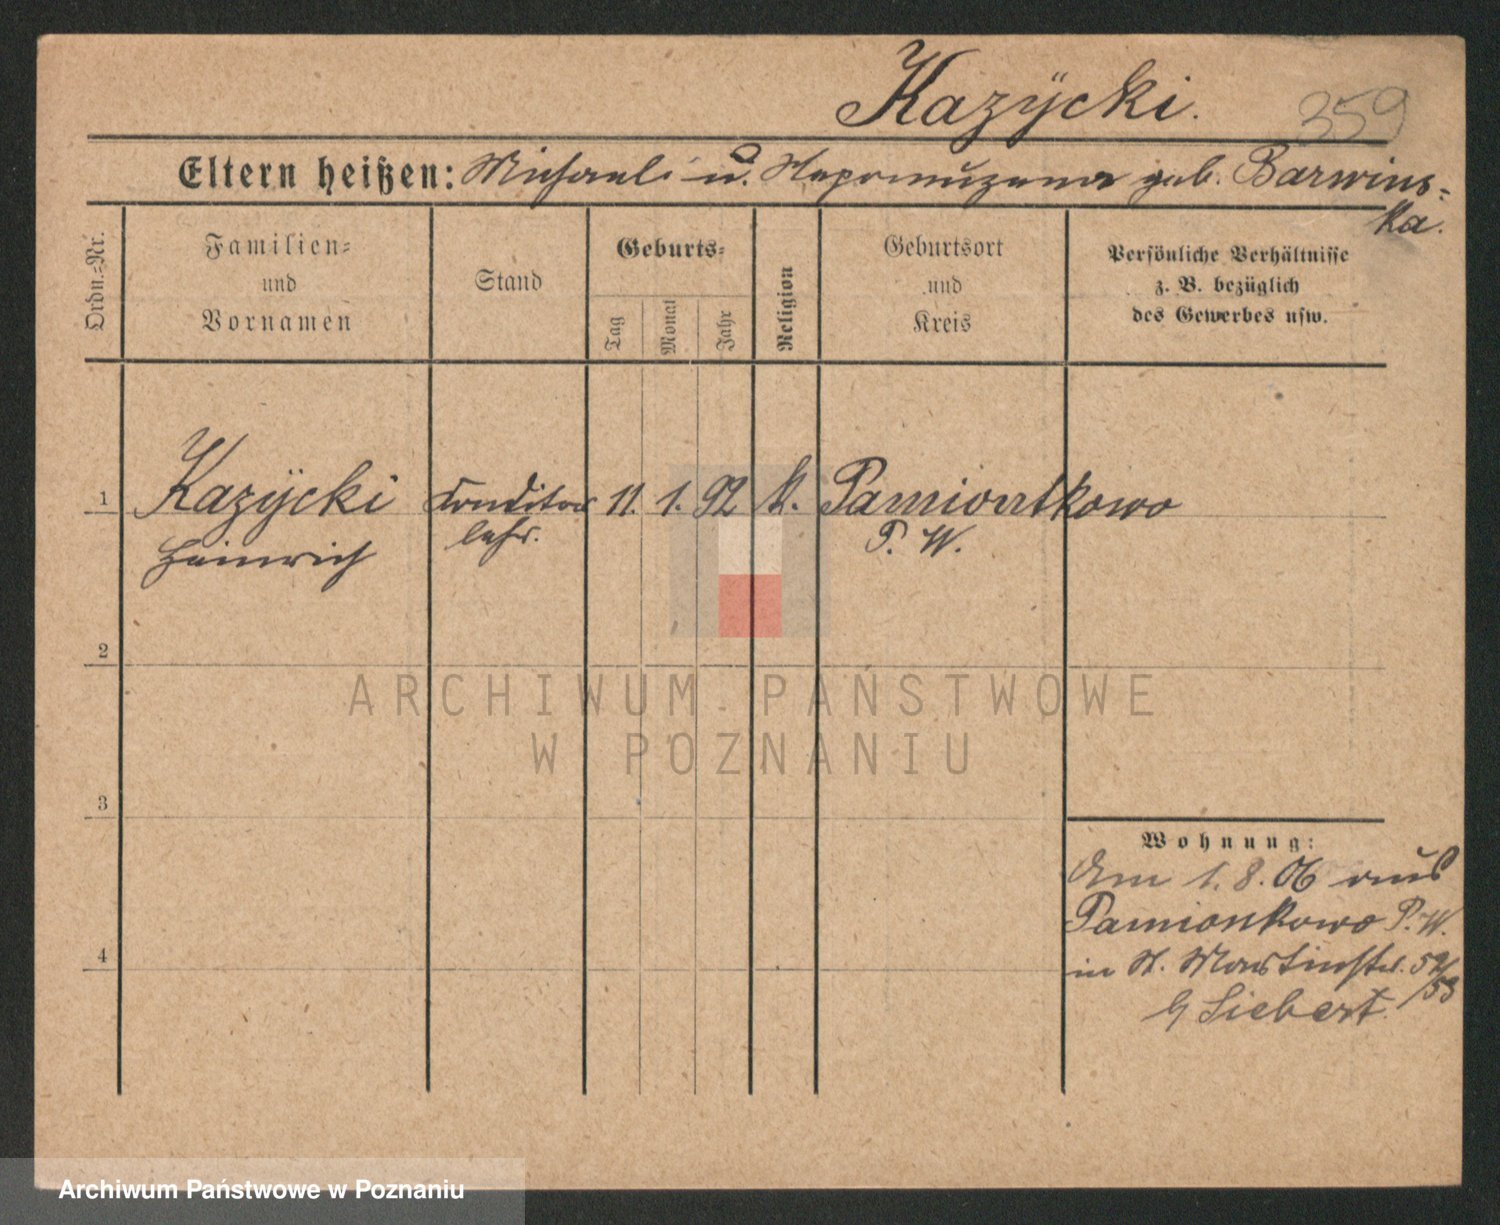 Kazÿcki.
359
Eltern heißen: Michaeli u. Nepomuzena geb. Barwins-
ka.
Ordn.-Nr.
Familien-
und
Vornamen
Stand
Geburts-
Tag
Monat
Jahr
Religion
Geburtsort
und
Kreis
Persönliche Verhältnisse
z. B. bezüglich
des Gewerbes usw.
1 Kazÿcki Conditor 11. 1. 92 k. Pamiontkowo
Heinrich lehr. P. W.
2
ARCHIWUM PAŃSTWOWE
W POZNANIU
3
Wohnung:
Am 1. 8. 06 aus
Pamionkowo P. W.
4
in St. Martinstr. 52/53
Siebert.
Archiwum Państwowe w Poznaniu